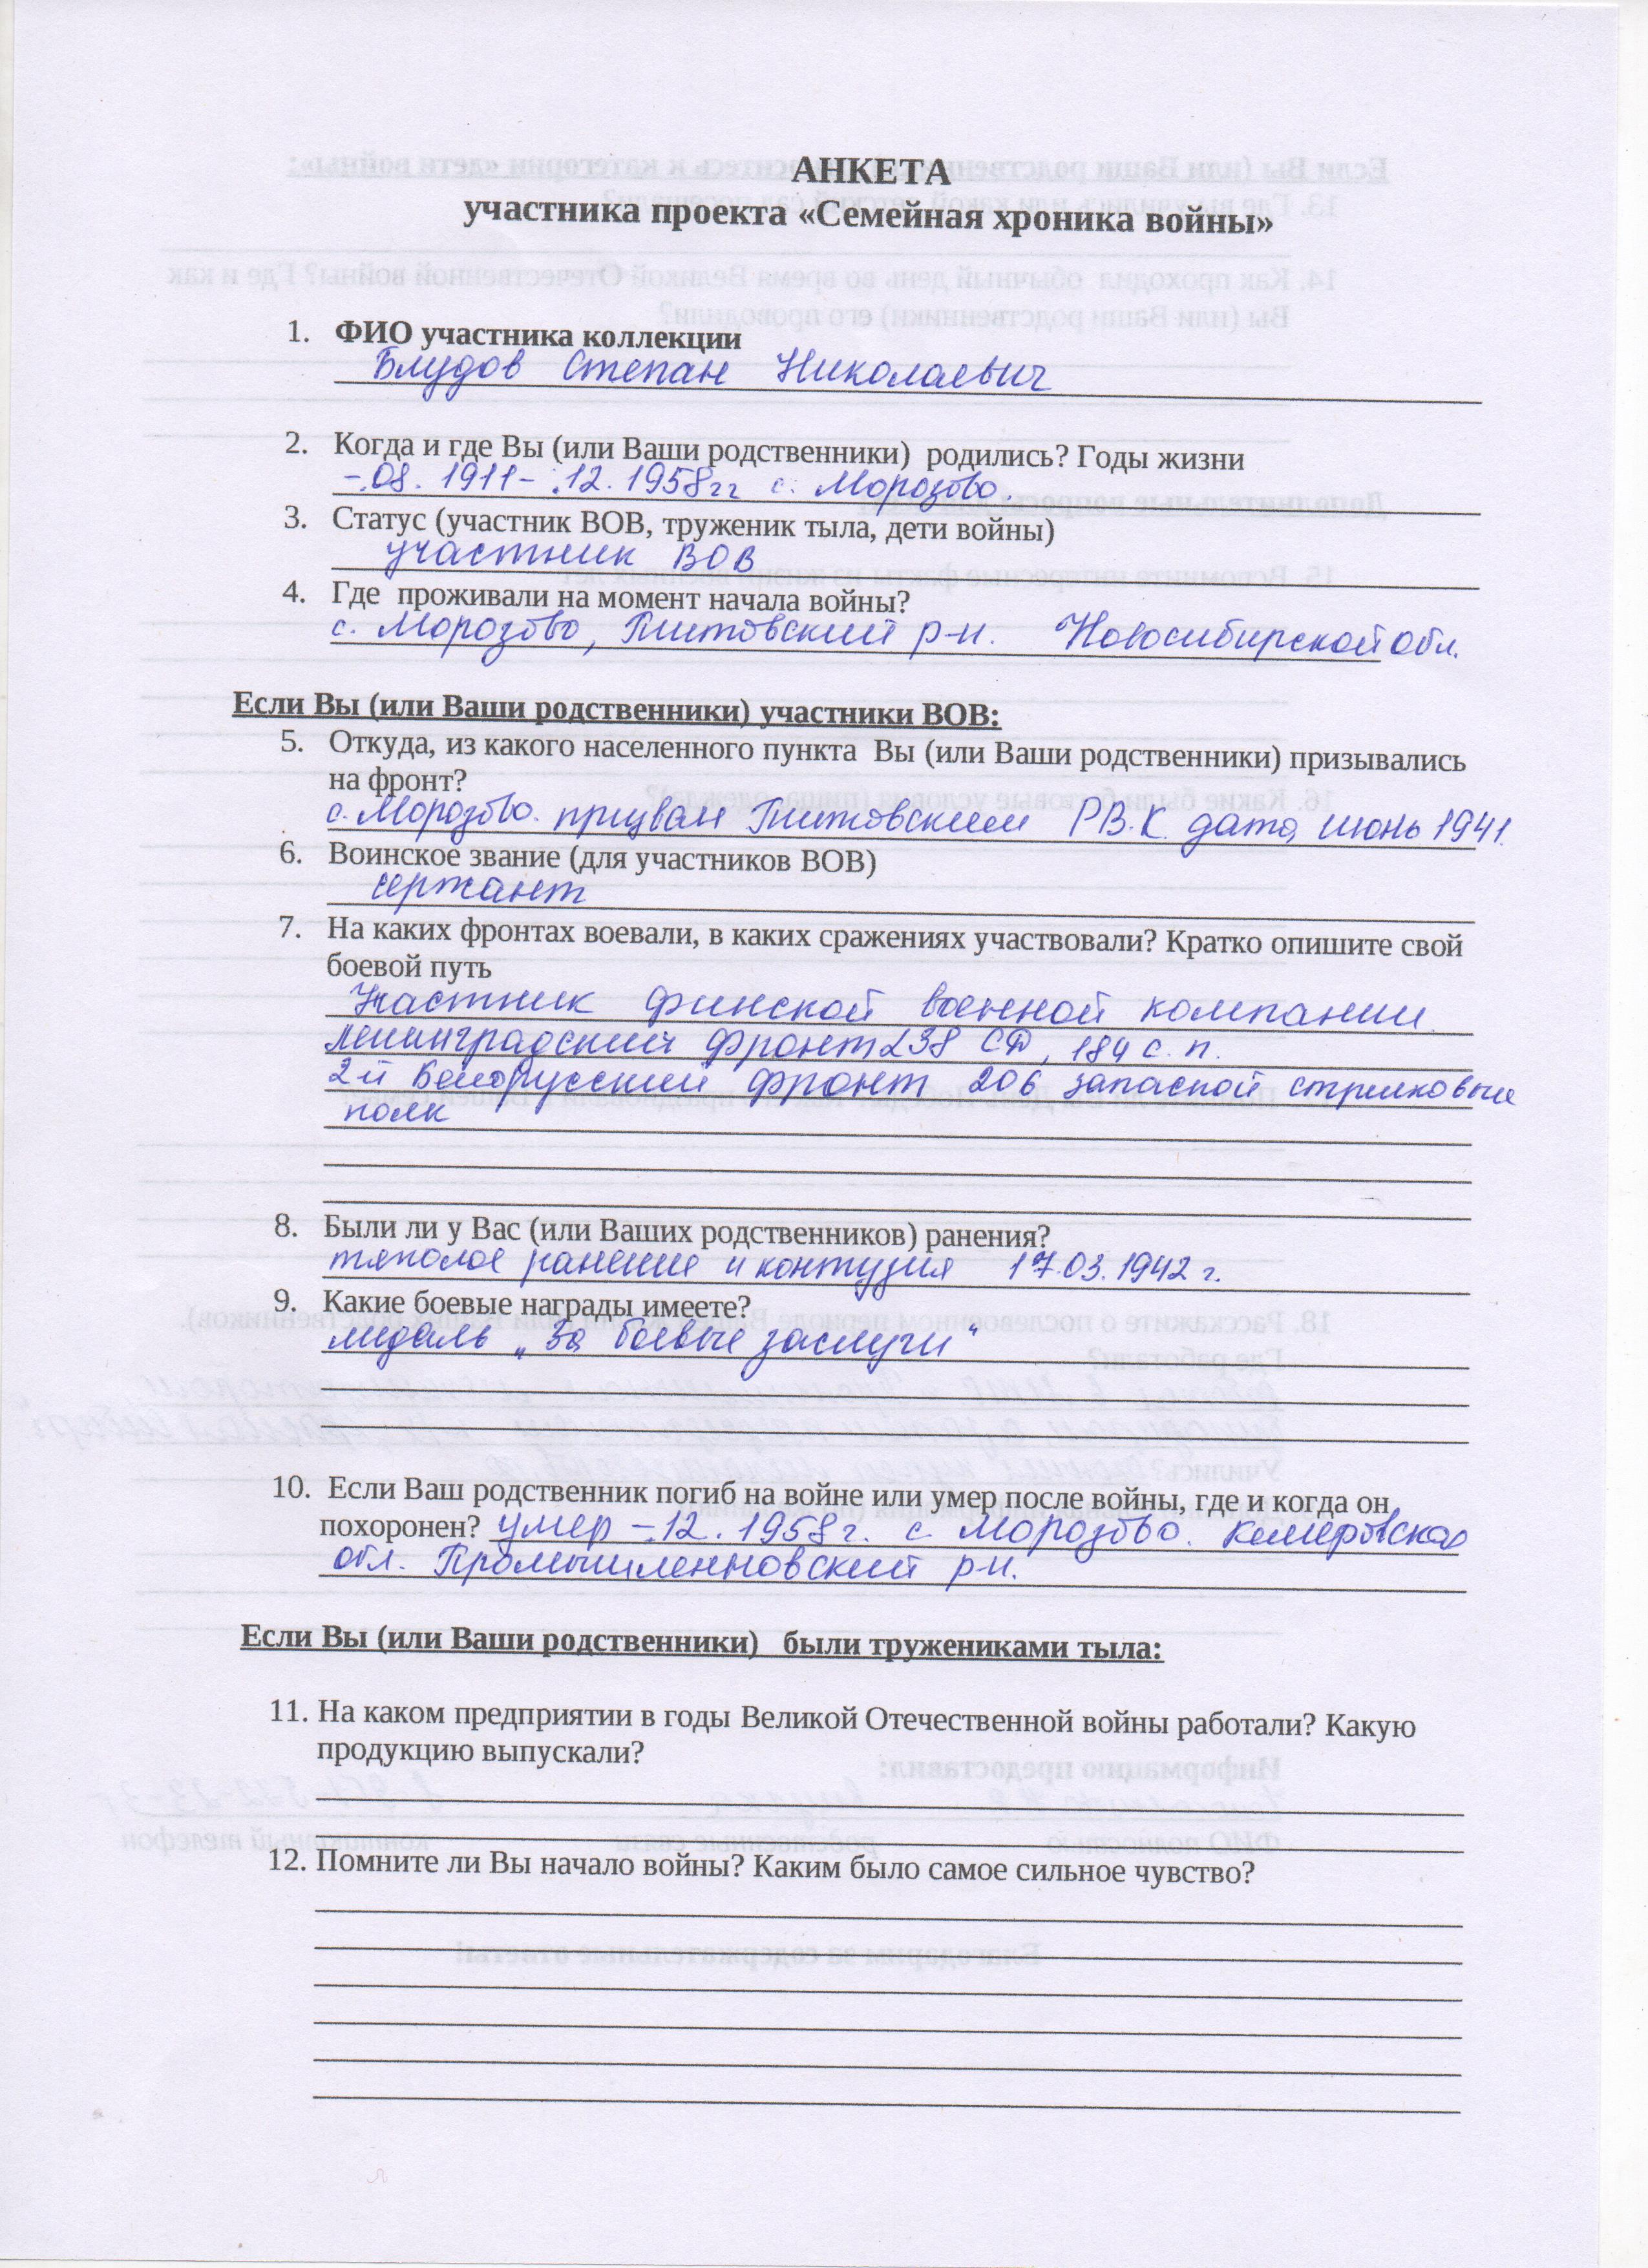 АНКЕТА
участника проекта «Семейная хроника войны»
1. ФИО участника коллекции
Блудов Степан Николаевич
2. Когда и где Вы (или Ваши родственники) родились? Годы жизни
-.08. 1911- .12. 1958гг с. Морозово.
3. Статус (участник ВОВ, труженик тыла, дети войны)
участник ВОВ
4. Где проживали на момент начала войны?
с. Морозово, Титовский р-н. Новосибирской обл.
Если Вы (или Ваши родственники) участники ВОВ:
5. Откуда, из какого населенного пункта Вы (или Ваши родственники) призывались
на фронт?
с. Морозово. призван Титовским РВ.К. дата июнь 1941.
6. Воинское звание (для участников ВОВ)
сержант
7. На каких фронтах воевали, в каких сражениях участвовали? Кратко опишите свой
боевой путь
Участник финской военной компании.
Ленинградский фронт 238 СД, 184 с. п.
2й Белорусский фронт 206 запасной стрелковый
полк
8. Были ли у Вас (или Ваших родственников) ранения?
тяжолое ранение и контузия 17.03.1942 г.
9. Какие боевые награды имеете?
медаль „За боевые заслуги“
10. Если Ваш родственник погиб на войне или умер после войны, где и когда он
похоронен? умер -.12. 1958 г. с. Морозово. Кемеровская
обл. Промышленновский р-н.
Если Вы (или Ваши родственники) были тружениками тыла:
11. На каком предприятии в годы Великой Отечественной войны работали? Какую
продукцию выпускали?
12. Помните ли Вы начало войны? Каким было самое сильное чувство?